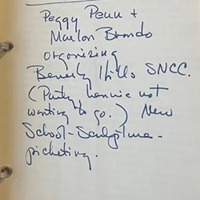 Peggy Penn +
Marlon Brando
organizing
Beverly Hills SNCC.
(Party hennie not
wanting to go.) New
School-Sculpture-
picketing.